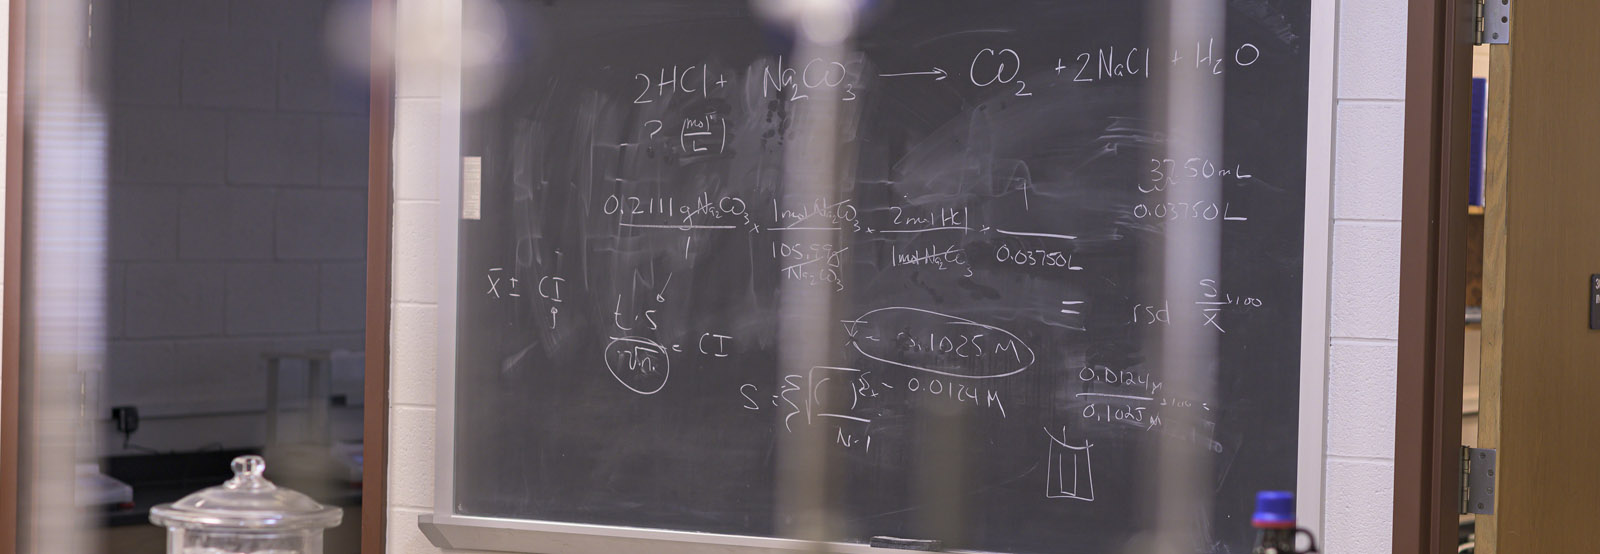 2HCl + Na₂CO₃ ⟶ CO₂ + 2NaCl + H₂O
? (mol/L)
37.50mL
0.03750L
0.2111 g Na₂CO₃/1 × 1 mol Na₂CO₃/105.99 g Na₂CO₃ × 2 mol HCl/1 mol Na₂CO₃ × 1/0.03750L
=
x̄ ± CI
t·s/√n = CI
rsd s/x̄ ×100
0.1025 M
S = √( )²/N-1 = 0.0124 M
0.0124 M/0.1025 M ×100 =